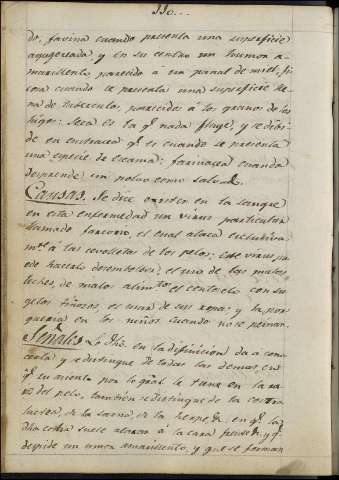 110...
do: favina cuando presenta una superficie
agugereada y en su centro un humor a-
marillento parecido á un panal de miel, fi-
cosa cuando se presenta una superficie lle-
na de tuberculos, parecida á los granos de los
higos: Seca es la qe nada fluye, y se divi-
de en custracea qe es cuando se presenta
una especie de escama: farinacea cuando
desprende un polvo como salvado.
Causas. Se dice existir en la sangre
en esta enfermedad un virus particular
llamado favoso, el cual ataca exclusiva
mte á las cevolletas de los pelos: este virus pu
ede hacerlo desembolver, el uso de las malas
leches, de malos alimtos el contacto con su-
getos tiñosos, el usar de sus ropas; y la por-
queria en los niños cuando no se peinan.
Señales Lo dho. en la difinicion da á cono-
cerla y se distingue de todas las demas, en
qe su asiento por lo gral. le tiene en la ra-
iz del pelo, tambien se distingue de la costra
lactea, de la sarna, de la herpe &. en qe la
dha costra suele atacar á la cara frente &. y qe
despide un umor amarillento, y que se forman